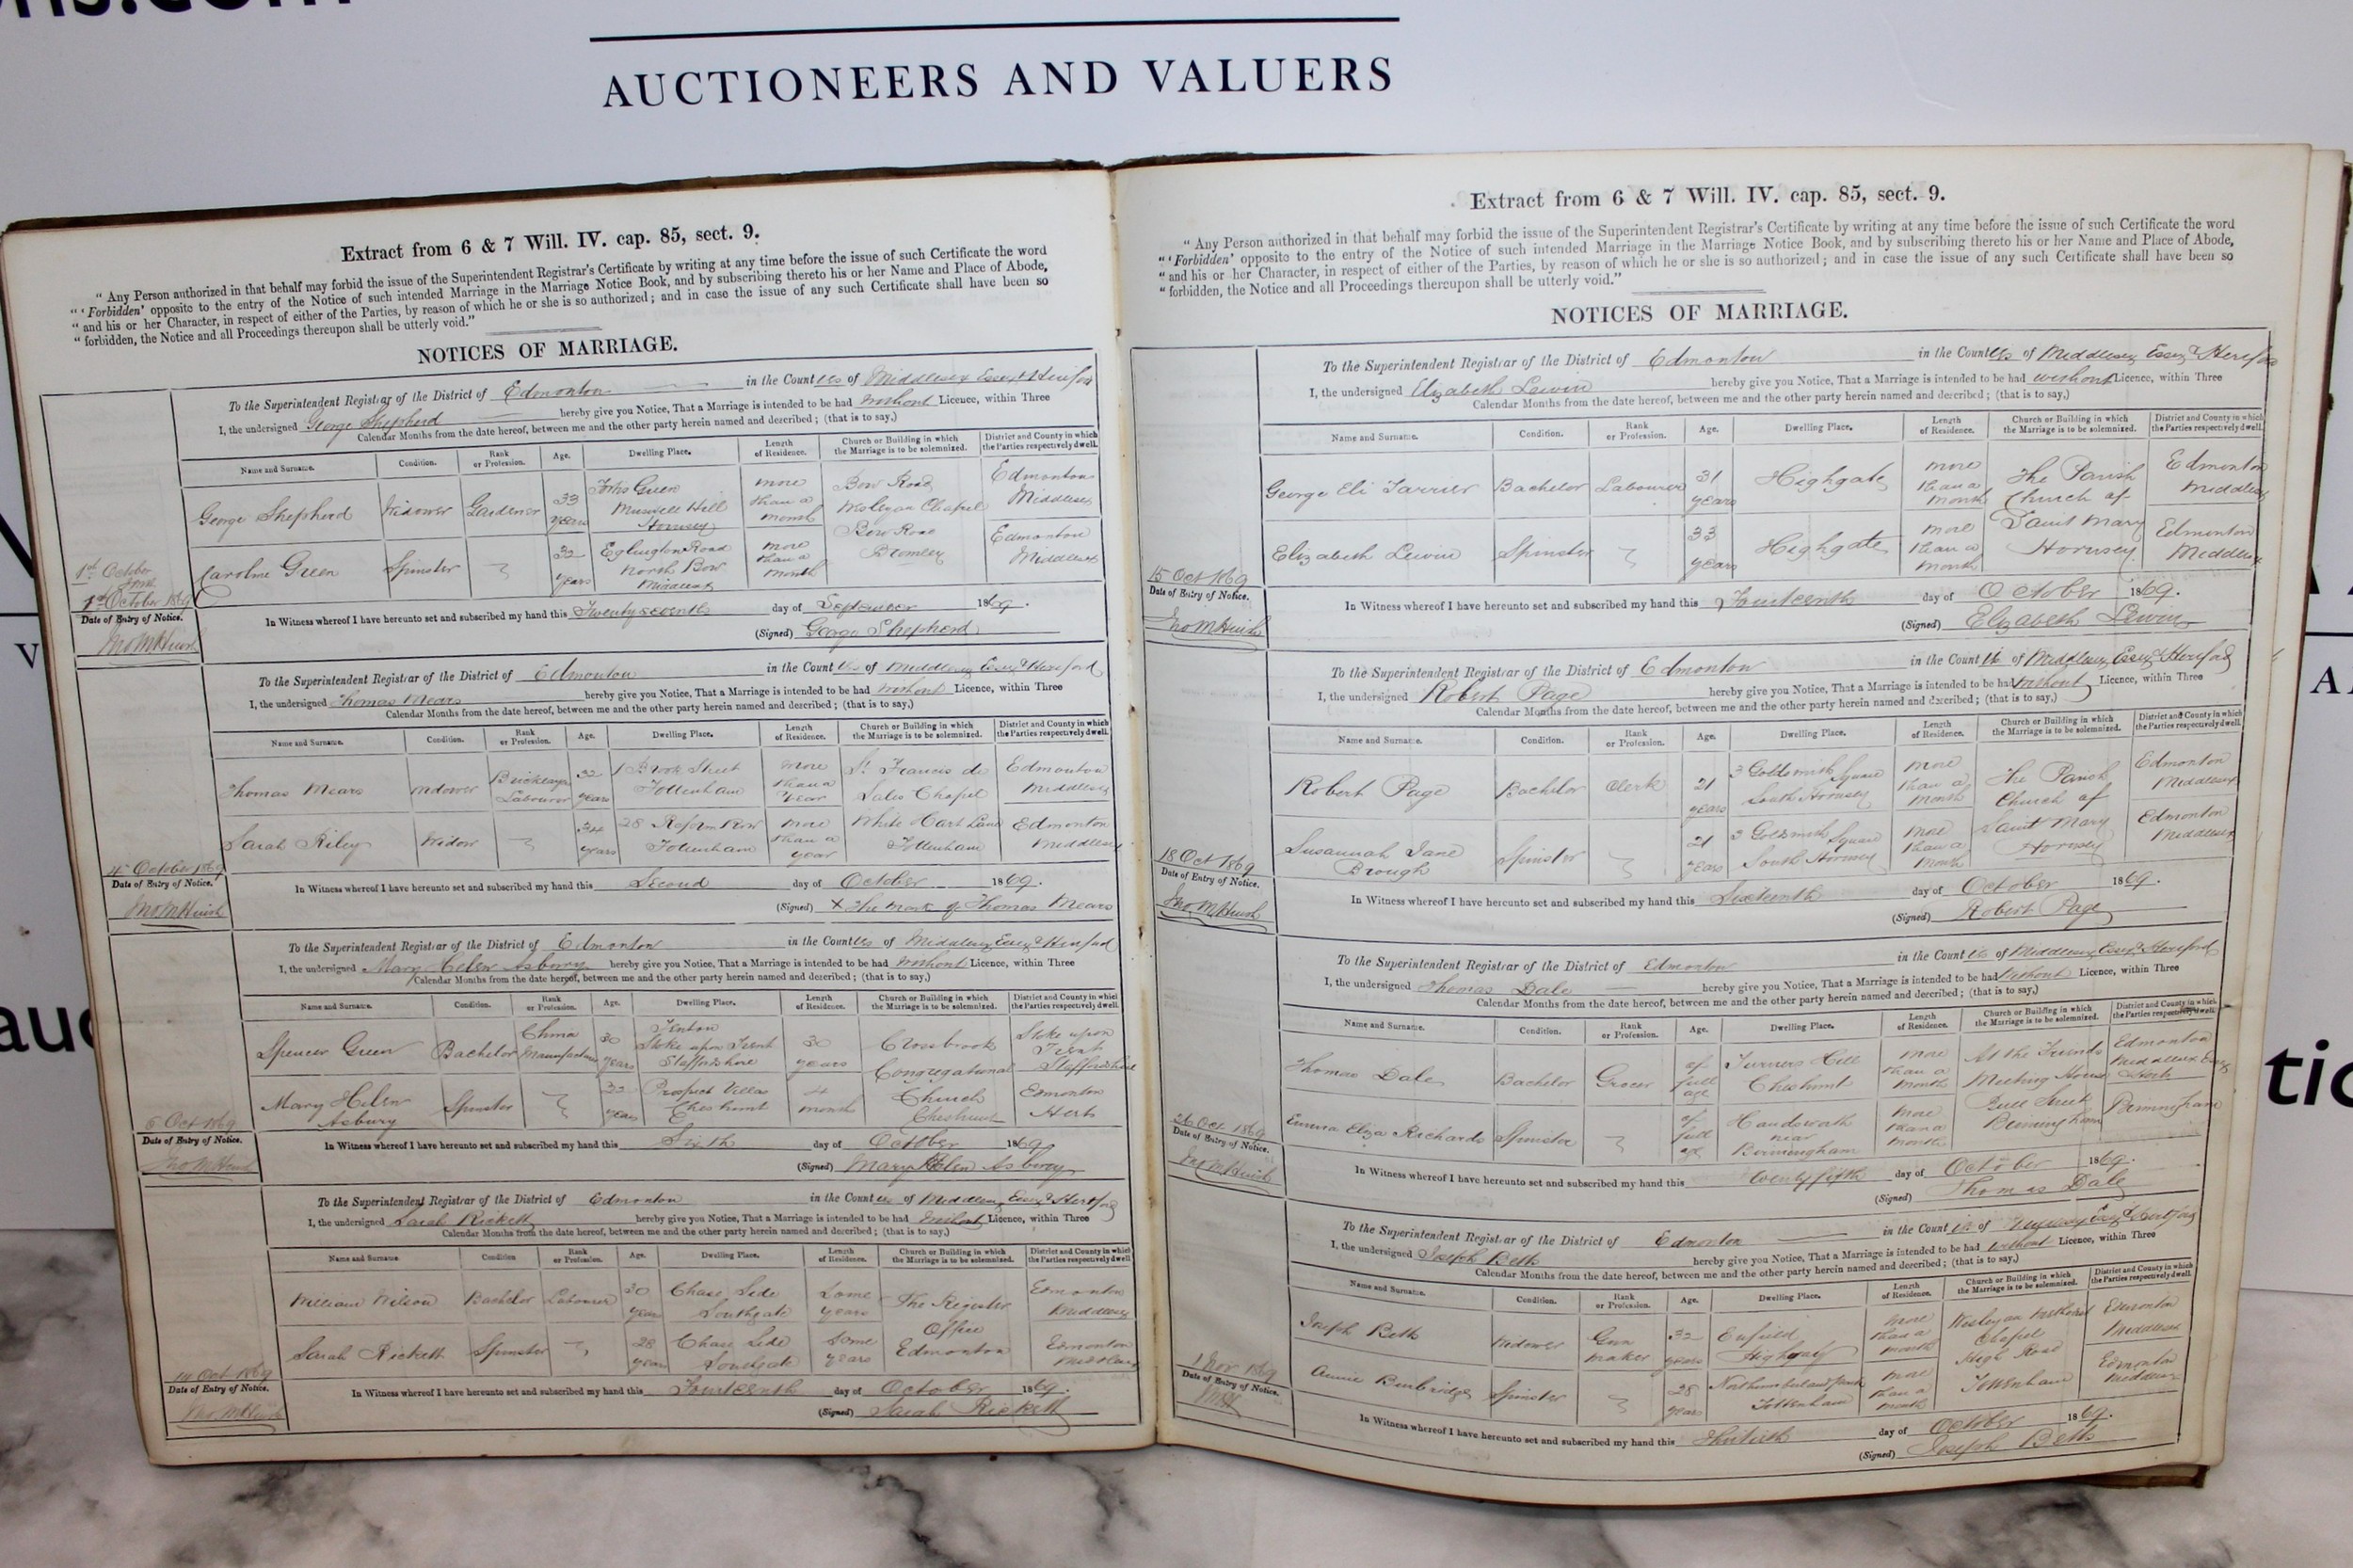 ns.com
AUCTIONEERS AND VALUERS
Extract from 6 & 7 Will. IV. cap. 85, sect. 9.
" Any Person authorized in that behalf may forbid the issue of the Superintendent Registrar's Certificate by writing at any time before the issue of such Certificate the word
" ' Forbidden' opposite to the entry of the Notice of such intended Marriage in the Marriage Notice Book, and by subscribing thereto his or her Name and Place of Abode,
" and his or her Character, in respect of either of the Parties, by reason of which he or she is so authorized ; and in case the issue of any such Certificate shall have been so
" forbidden, the Notice and all Proceedings thereupon shall be utterly void."
NOTICES OF MARRIAGE.
To the Superintendent Registrar of the District of Edmonton in the Counties of Middlesex Essex &
I, the undersigned George Shepherd hereby give you Notice, That a Marriage is intended to be had without Licence, within Three
Calendar Months from the date hereof, between me and the other party herein named and described ; (that is to say,)
Name and Surname. Condition. Rank or Profession. Age. Dwelling Place. Length of Residence. Church or Building in which the Marriage is to be solemnized. District and County in which the Parties respectively dwell.
George Shepherd Widower Gardener 33 years Green Muswell Hill Hornsey more than a month Bow Road Wesleyan Chapel Edmonton Middlesex
Caroline Green Spinster 32 years Eglington Road North Bow Middlesex more than a month Bow Road Bromley Edmonton Middlesex
1st October
1st October 1869
Date of Entry of Notice.
In Witness whereof I have hereunto set and subscribed my hand this Twenty seventh day of September 1869.
(Signed) George Shepherd
To the Superintendent Registrar of the District of Edmonton in the Counties of Middlesex Essex &
I, the undersigned Thomas Mears hereby give you Notice, That a Marriage is intended to be had without Licence, within Three
Calendar Months from the date hereof, between me and the other party herein named and described ; (that is to say,)
Name and Surname. Condition. Rank or Profession. Age. Dwelling Place. Length of Residence. Church or Building in which the Marriage is to be solemnized. District and County in which the Parties respectively dwell.
Thomas Mears Widower Bricklayer Labourer 32 years 1 Brook Street Tottenham more than a year St Francis de Sales Chapel Edmonton Middlesex
Sarah Riley Widow 34 years 28 Reform Row Tottenham more than a year White Hart Lane Tottenham Edmonton Middlesex
4th October 1869
Date of Entry of Notice.
In Witness whereof I have hereunto set and subscribed my hand this Second day of October 1869.
(Signed) X The mark of Thomas Mears
To the Superintendent Registrar of the District of Edmonton in the Counties of Middlesex Essex &
I, the undersigned Mary Helen Asbury hereby give you Notice, That a Marriage is intended to be had without Licence, within Three
Calendar Months from the date hereof, between me and the other party herein named and described ; (that is to say,)
Name and Surname. Condition. Rank or Profession. Age. Dwelling Place. Length of Residence. Church or Building in which the Marriage is to be solemnized. District and County in which the Parties respectively dwell.
Spencer Green Bachelor China Manufacturer 30 years Fenton Stoke upon Trent Staffordshire 30 years Crossbrook Congregational Stoke upon Trent Staffordshire
Mary Helen Asbury Spinster 32 years Prospect Villas Cheshunt 4 month Church Cheshunt Edmonton Herts
6 Oct 1869
Date of Entry of Notice.
In Witness whereof I have hereunto set and subscribed my hand this Sixth day of October 1869
(Signed) Mary Helen Asbury
To the Superintendent Registrar of the District of Edmonton in the Counties of Middlesex Essex & Hertford
I, the undersigned Sarah Rickett hereby give you Notice, That a Marriage is intended to be had without Licence, within Three
Calendar Months from the date hereof, between me and the other party herein named and described ; (that is to say,)
Name and Surname Condition Rank or Profession. Age. Dwelling Place. Length of Residence. Church or Building in which the Marriage is to be solemnized. District and County in which the Parties respectively dwell.
William Wilson Bachelor Labourer 30 years Chase Side Southgate Some years The Register Office Edmonton Middlesex
Sarah Rickett Spinster 28 years Chase Side Southgate Some years Edmonton Edmonton Middlesex
14 Oct 1869
Date of Entry of Notice.
In Witness whereof I have hereunto set and subscribed my hand this Fourteenth day of October 1869.
(Signed) Sarah Rickett
Extract from 6 & 7 Will. IV. cap. 85, sect. 9.
" Any Person authorized in that behalf may forbid the issue of the Superintendent Registrar's Certificate by writing at any time before the issue of such Certificate the word
" ' Forbidden' opposite to the entry of the Notice of such intended Marriage in the Marriage Notice Book, and by subscribing thereto his or her Name and Place of Abode,
" and his or her Character, in respect of either of the Parties, by reason of which he or she is so authorized ; and in case the issue of any such Certificate shall have been so
" forbidden, the Notice and all Proceedings thereupon shall be utterly void."
NOTICES OF MARRIAGE.
To the Superintendent Registrar of the District of Edmonton in the Counties of Middlesex Essex &
I, the undersigned Elizabeth Lewin hereby give you Notice, That a Marriage is intended to be had without Licence, within Three
Calendar Months from the date hereof, between me and the other party herein named and described ; (that is to say,)
Name and Surname. Condition. Rank or Profession. Age. Dwelling Place. Length of Residence. Church or Building in which the Marriage is to be solemnized. District and County in which the Parties respectively dwell.
George Eli Bachelor Labourer 31 years Highgate more than a month The Parish Church of Edmonton Middlesex
Elizabeth Lewin Spinster 33 years Highgate more than a month Saint Mary Hornsey Edmonton Middlesex
15 Oct 1869
Date of Entry of Notice.
In Witness whereof I have hereunto set and subscribed my hand this Fourteenth day of October 1869.
(Signed) Elizabeth Lewin
To the Superintendent Registrar of the District of Edmonton in the Counties of Middlesex Essex &
I, the undersigned Robert Page hereby give you Notice, That a Marriage is intended to be had without Licence, within Three
Calendar Months from the date hereof, between me and the other party herein named and described ; (that is to say,)
Name and Surname. Condition. Rank or Profession. Age. Dwelling Place. Length of Residence. Church or Building in which the Marriage is to be solemnized. District and County in which the Parties respectively dwell.
Robert Page Bachelor Clerk 21 years 3 Goldsmith Square South Hornsey more than a month The Parish Church of Edmonton Middlesex
Susannah Jane Brough Spinster 21 years 3 Goldsmith Square South Hornsey more than a month Saint Mary Hornsey Edmonton Middlesex
18 Oct 1869
Date of Entry of Notice.
In Witness whereof I have hereunto set and subscribed my hand this Sixteenth day of October 1869.
(Signed) Robert Page
To the Superintendent Registrar of the District of Edmonton in the Counties of Middlesex Essex &
I, the undersigned Thomas Dale hereby give you Notice, That a Marriage is intended to be had without Licence, within Three
Calendar Months from the date hereof, between me and the other party herein named and described ; (that is to say,)
Name and Surname. Condition. Rank or Profession. Age. Dwelling Place. Length of Residence. Church or Building in which the Marriage is to be solemnized. District and County in which the Parties respectively dwell.
Thomas Dale Bachelor Grocer of full age Turners Hill Cheshunt more than a month At the Friends Meeting House Edmonton Middlesex Essex Herts
Emma Eliza Richards Spinster of full age Handsworth near Birmingham more than a month Bull Street Birmingham Birmingham
26 Oct 1869
Date of Entry of Notice.
In Witness whereof I have hereunto set and subscribed my hand this twenty fifth day of October 1869.
(Signed) Thomas Dale
To the Superintendent Registrar of the District of Edmonton in the Counties of Essex & Hertford
I, the undersigned Joseph Betts hereby give you Notice, That a Marriage is intended to be had without Licence, within Three
Calendar Months from the date hereof, between me and the other party herein named and described ; (that is to say,)
Name and Surname. Condition. Rank or Profession. Age. Dwelling Place. Length of Residence. Church or Building in which the Marriage is to be solemnized. District and County in which the Parties respectively dwell.
Joseph Betts Widower Gun maker 32 years Enfield Highway more than a month Wesleyan Methodist Chapel Edmonton Middlesex
Annie Burbridge Spinster 28 years Northumberland Park Tottenham more than a month High Road Tottenham Edmonton Middlesex
1 Nov 1869
Date of Entry of Notice.
In Witness whereof I have hereunto set and subscribed my hand this Thirtieth day of October 1869.
(Signed) Joseph Betts